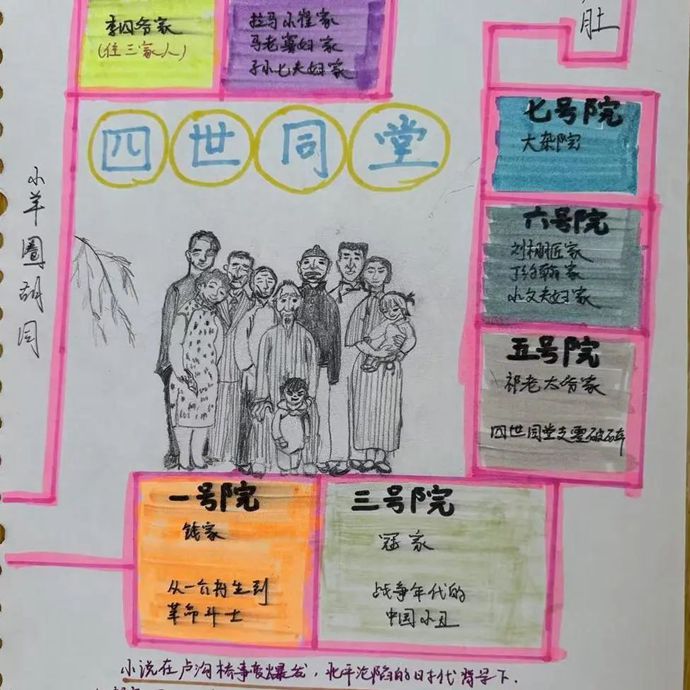 李四爷家
(住三家人)
拉马小崔家
马老寡妇家
孙七夫妇家
肚
四世同堂
七号院
大杂院
小羊圈胡同
六号院
刘棚匠家
丁约翰家
小文夫妇家
五号院
祁老太爷家
四世同堂支零破碎
一号院
钱家
从一介书生到
革命斗士
三号院
冠家
战争年代的
中国小丑
小说在卢沟桥事变爆发，北平沦陷的时代背景下.